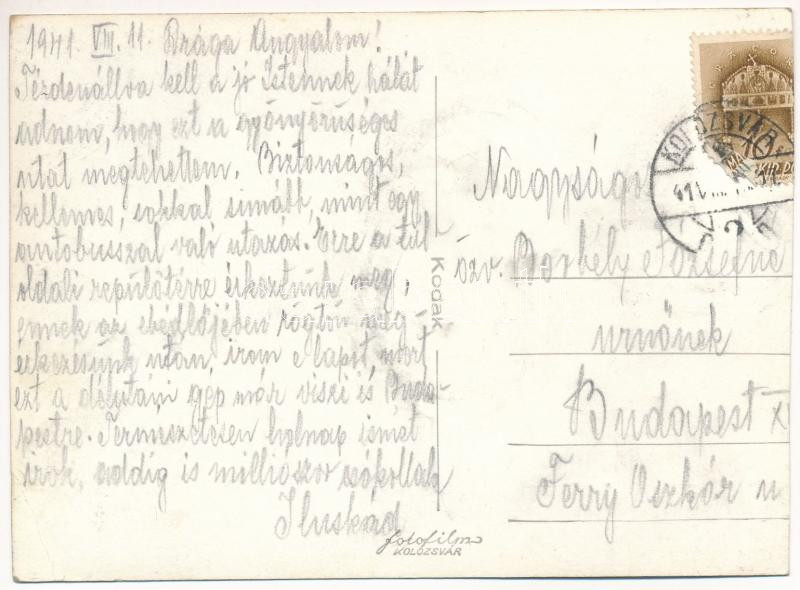 1941. VIII. 11. Drága Angyalom!
Térdenállva kell a jó Istennek hálát
adnom, hogy ezt a gyönyörűséges
utat megtehettem. Biztonságos,
kellemes, sokkal simább, mint egy
autobusszal való utazás. Erre a túl
oldali repülőtérre érkeztünk meg,
ennek az ebédlőjében rögtön meg-
érkezésünk után, irom e lapit, mert
ezt a délutáni gép már viszi is Buda-
pestre. Természetesen holnap ismét
irok, addig is milliószor csókollak
Iluskád
Kodak
fotofilm
KOLOZSVÁR
KOLOZSVÁR
2
Nagyságos
özv. Borbély Józsefné
urnőnek
Budapest X
Ferry Oszkár u